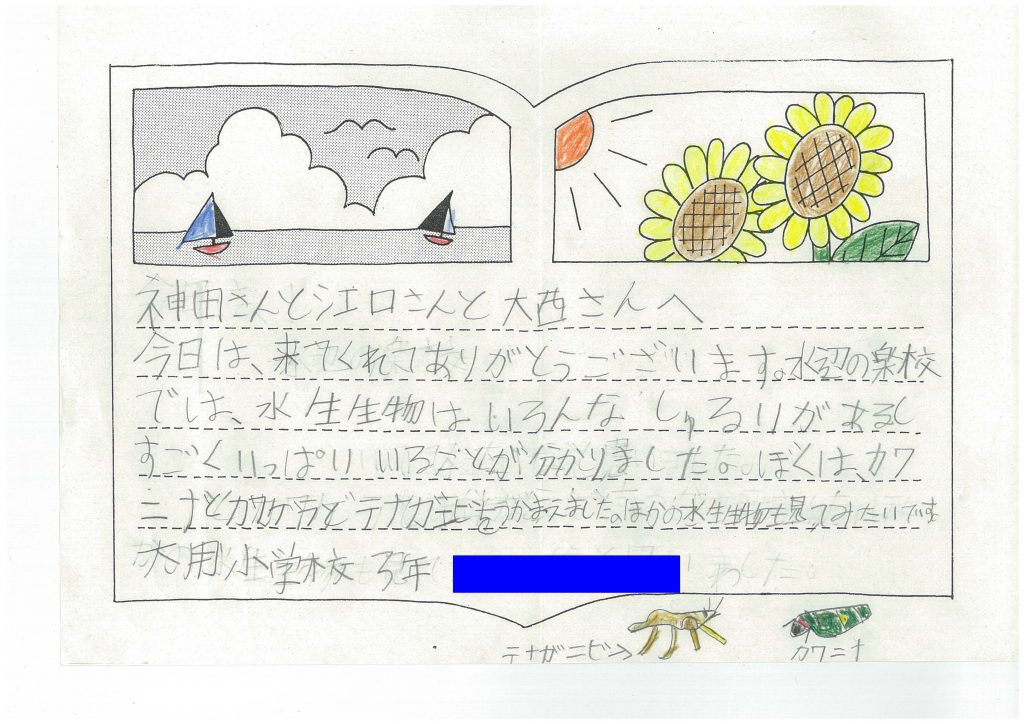 神田さんと江口さんと大西さんへ
今日は、来てくれてありがとうございます。水辺の楽校
では、水生生物はいろんなしゅるいがあるし
すごくいっぱいいることが分かりました。ぼくは、カワ
ニナとカワゲラとテナガエビをつかまえました。ほかの水生生物も見つてみたいです
大用小学校 3年
テナガエビ→
カワニナ